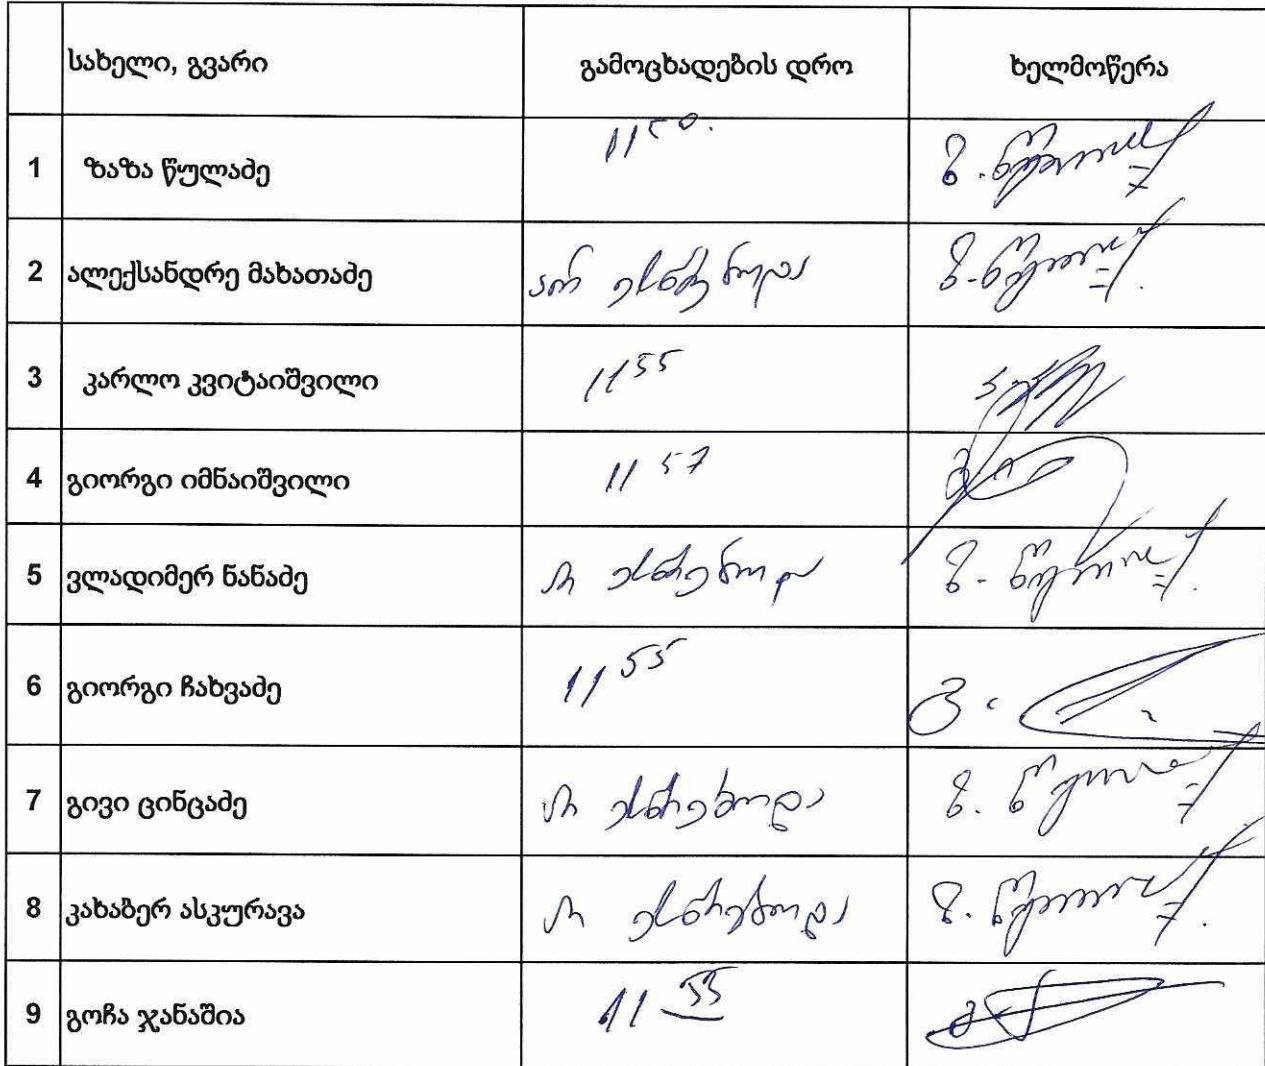 სახელი, გვარი გამოცხადების დრო ხელმოწერა
1 ზაზა წულაძე 11 50. ზ. წულაძე
2 ალექსანდრე მახათაძე არ ესწრებოდა ზ. წულაძე
3 კარლო კვიტაიშვილი 11 55
4 გიორგი იმნაიშვილი 11 57
5 ვლადიმერ ნანაძე არ ესწრებოდა ზ. წულაძე
6 გიორგი ჩახვაძე 11 55
7 გივი ცინცაძე არ ესწრებოდა ზ. წულაძე
8 კახაბერ ასკურავა არ ესწრებოდა ზ. წულაძე
9 გოჩა ჯანაშია 11 55